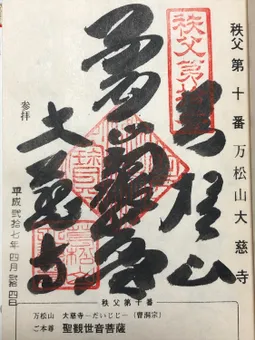 秩父第十番 万松山大慈寺
秩父第十番
万松山
聖観世音
大慈寺
参拝
平成弐拾七年 四月 四日
秩父第十番
万松山 大慈寺―だいじじ―(曹洞宗)
ご本尊 聖観世音菩薩